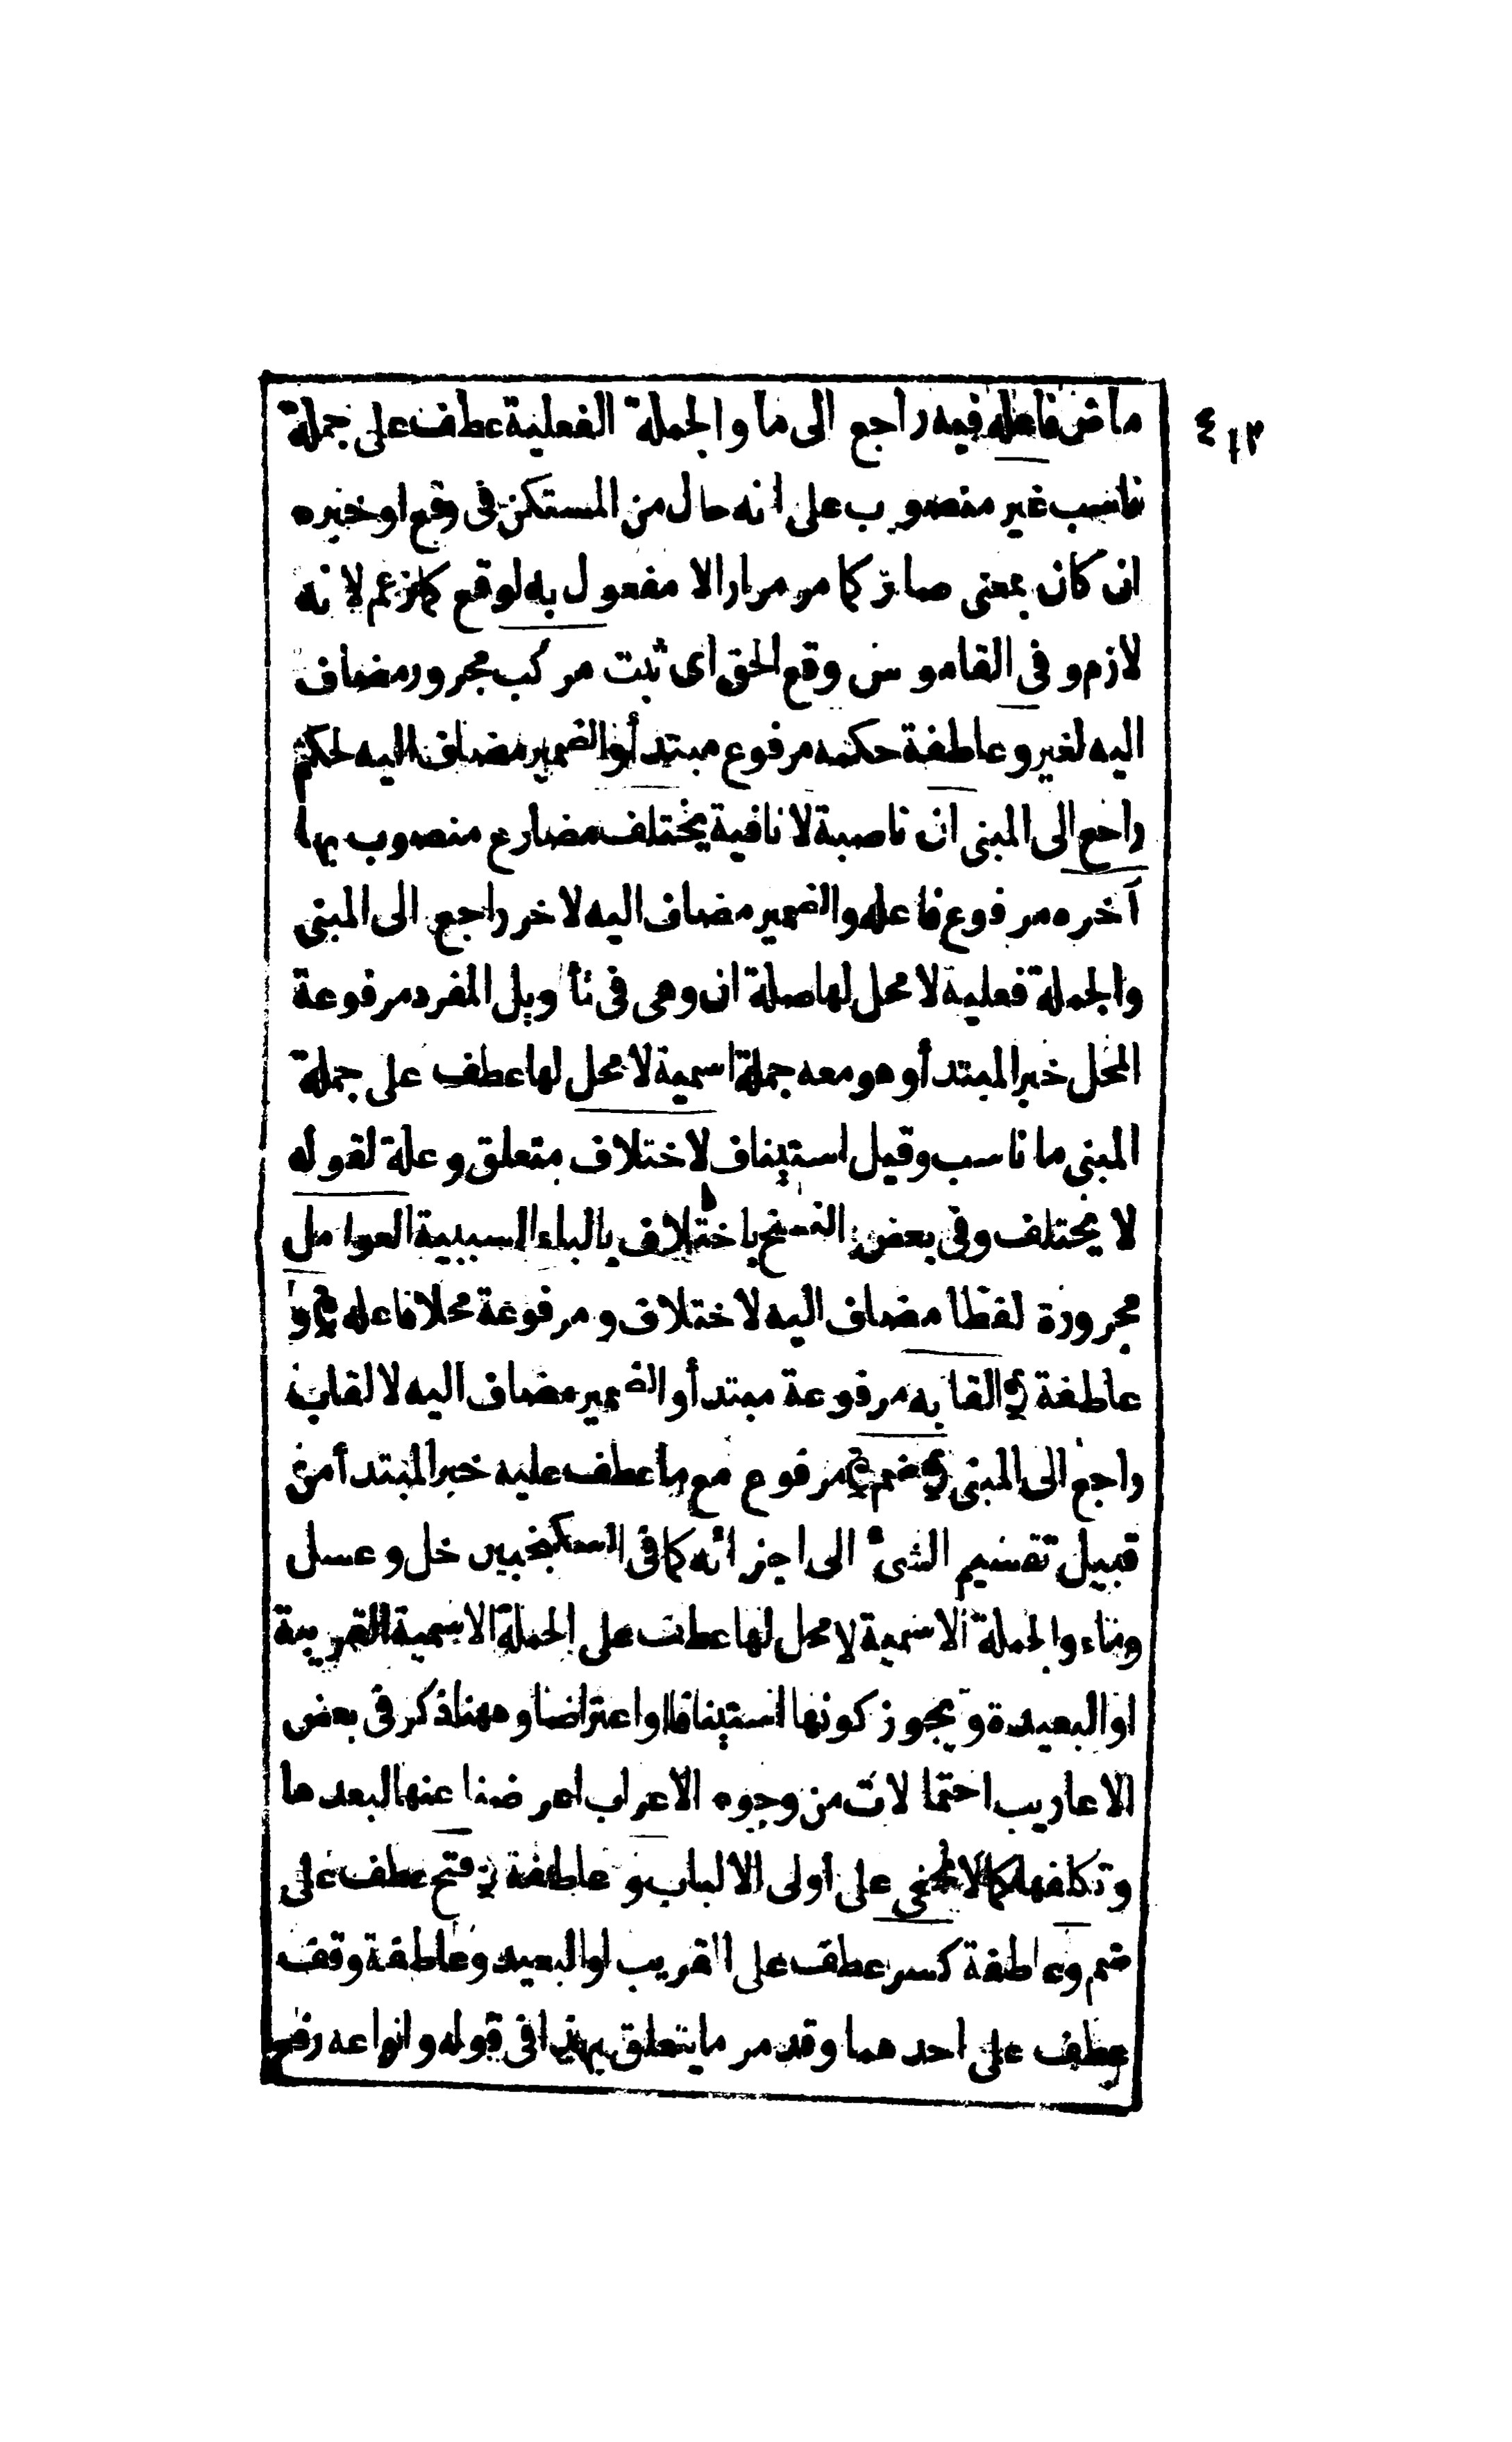 ماض فاعله فيه راجع الى ما والجملة الفعلية عطف على جملة
٤١٣
ناسب غير منصوب على انه حال من المستكن فى وقع او خبره
ان كان بمعنى صار كما مر مرارا لا مفعول به لوقع كما زعم لانه
لازم و فى القاموس وقع الحق اى ثبت مركب مجرور مضاف
اليه لغير و عاطفة حكمه مرفوع مبتدأ والضمير مضاف اليه لحكم
راجع الى المبنى ان ناصبة لا نافية يختلف مضارع منصوب بها
آخره مرفوع فاعله والضمير مضاف اليه لاخر راجع الى المبنى
والجملة فعلية لا محل لها صلة ان وهى فى تأويل المفرد مرفوعة
المحل خبر المبتدأ وهو معه جملة اسمية لا محل لها عطف على جملة
المبنى ما ناسب وقيل استيناف لاختلاف متعلق وعلة لقوله
لا يختلف وفى بعض النسخ باختلاف بالباء السببية العوامل
مجرورة لفظا مضاف اليه لاختلاف و مرفوعة محلا فاعله و
عاطفة القابه مرفوعة مبتدأ والضمير مضاف اليه لالقاب
راجع الى المبنى ضم مرفوع مع ما عطف عليه خبر المبتدأ من
قبيل تقسيم الشئ الى اجزائه كما فى السكنجبين خل و عسل
وماء والجملة الاسمية لا محل لها عطف على الجملة الاسمية القريبة
او البعيدة و يجوز كونها استينافا او اعتراضا وههنا ذكر فى بعض
الاعاريب احتمالات من وجوه الاعراب اعرضنا عنها لبعدها
وتكلفها كما لا يخفى على اولى الالباب و عاطفة فتح عطف على
ضم و عاطفة كسر عطف على القريب او البعيد و عاطفة وقف
عطف على احدهما وقد مر ما يتعلق بهذا فى قوله وانواعه رفع